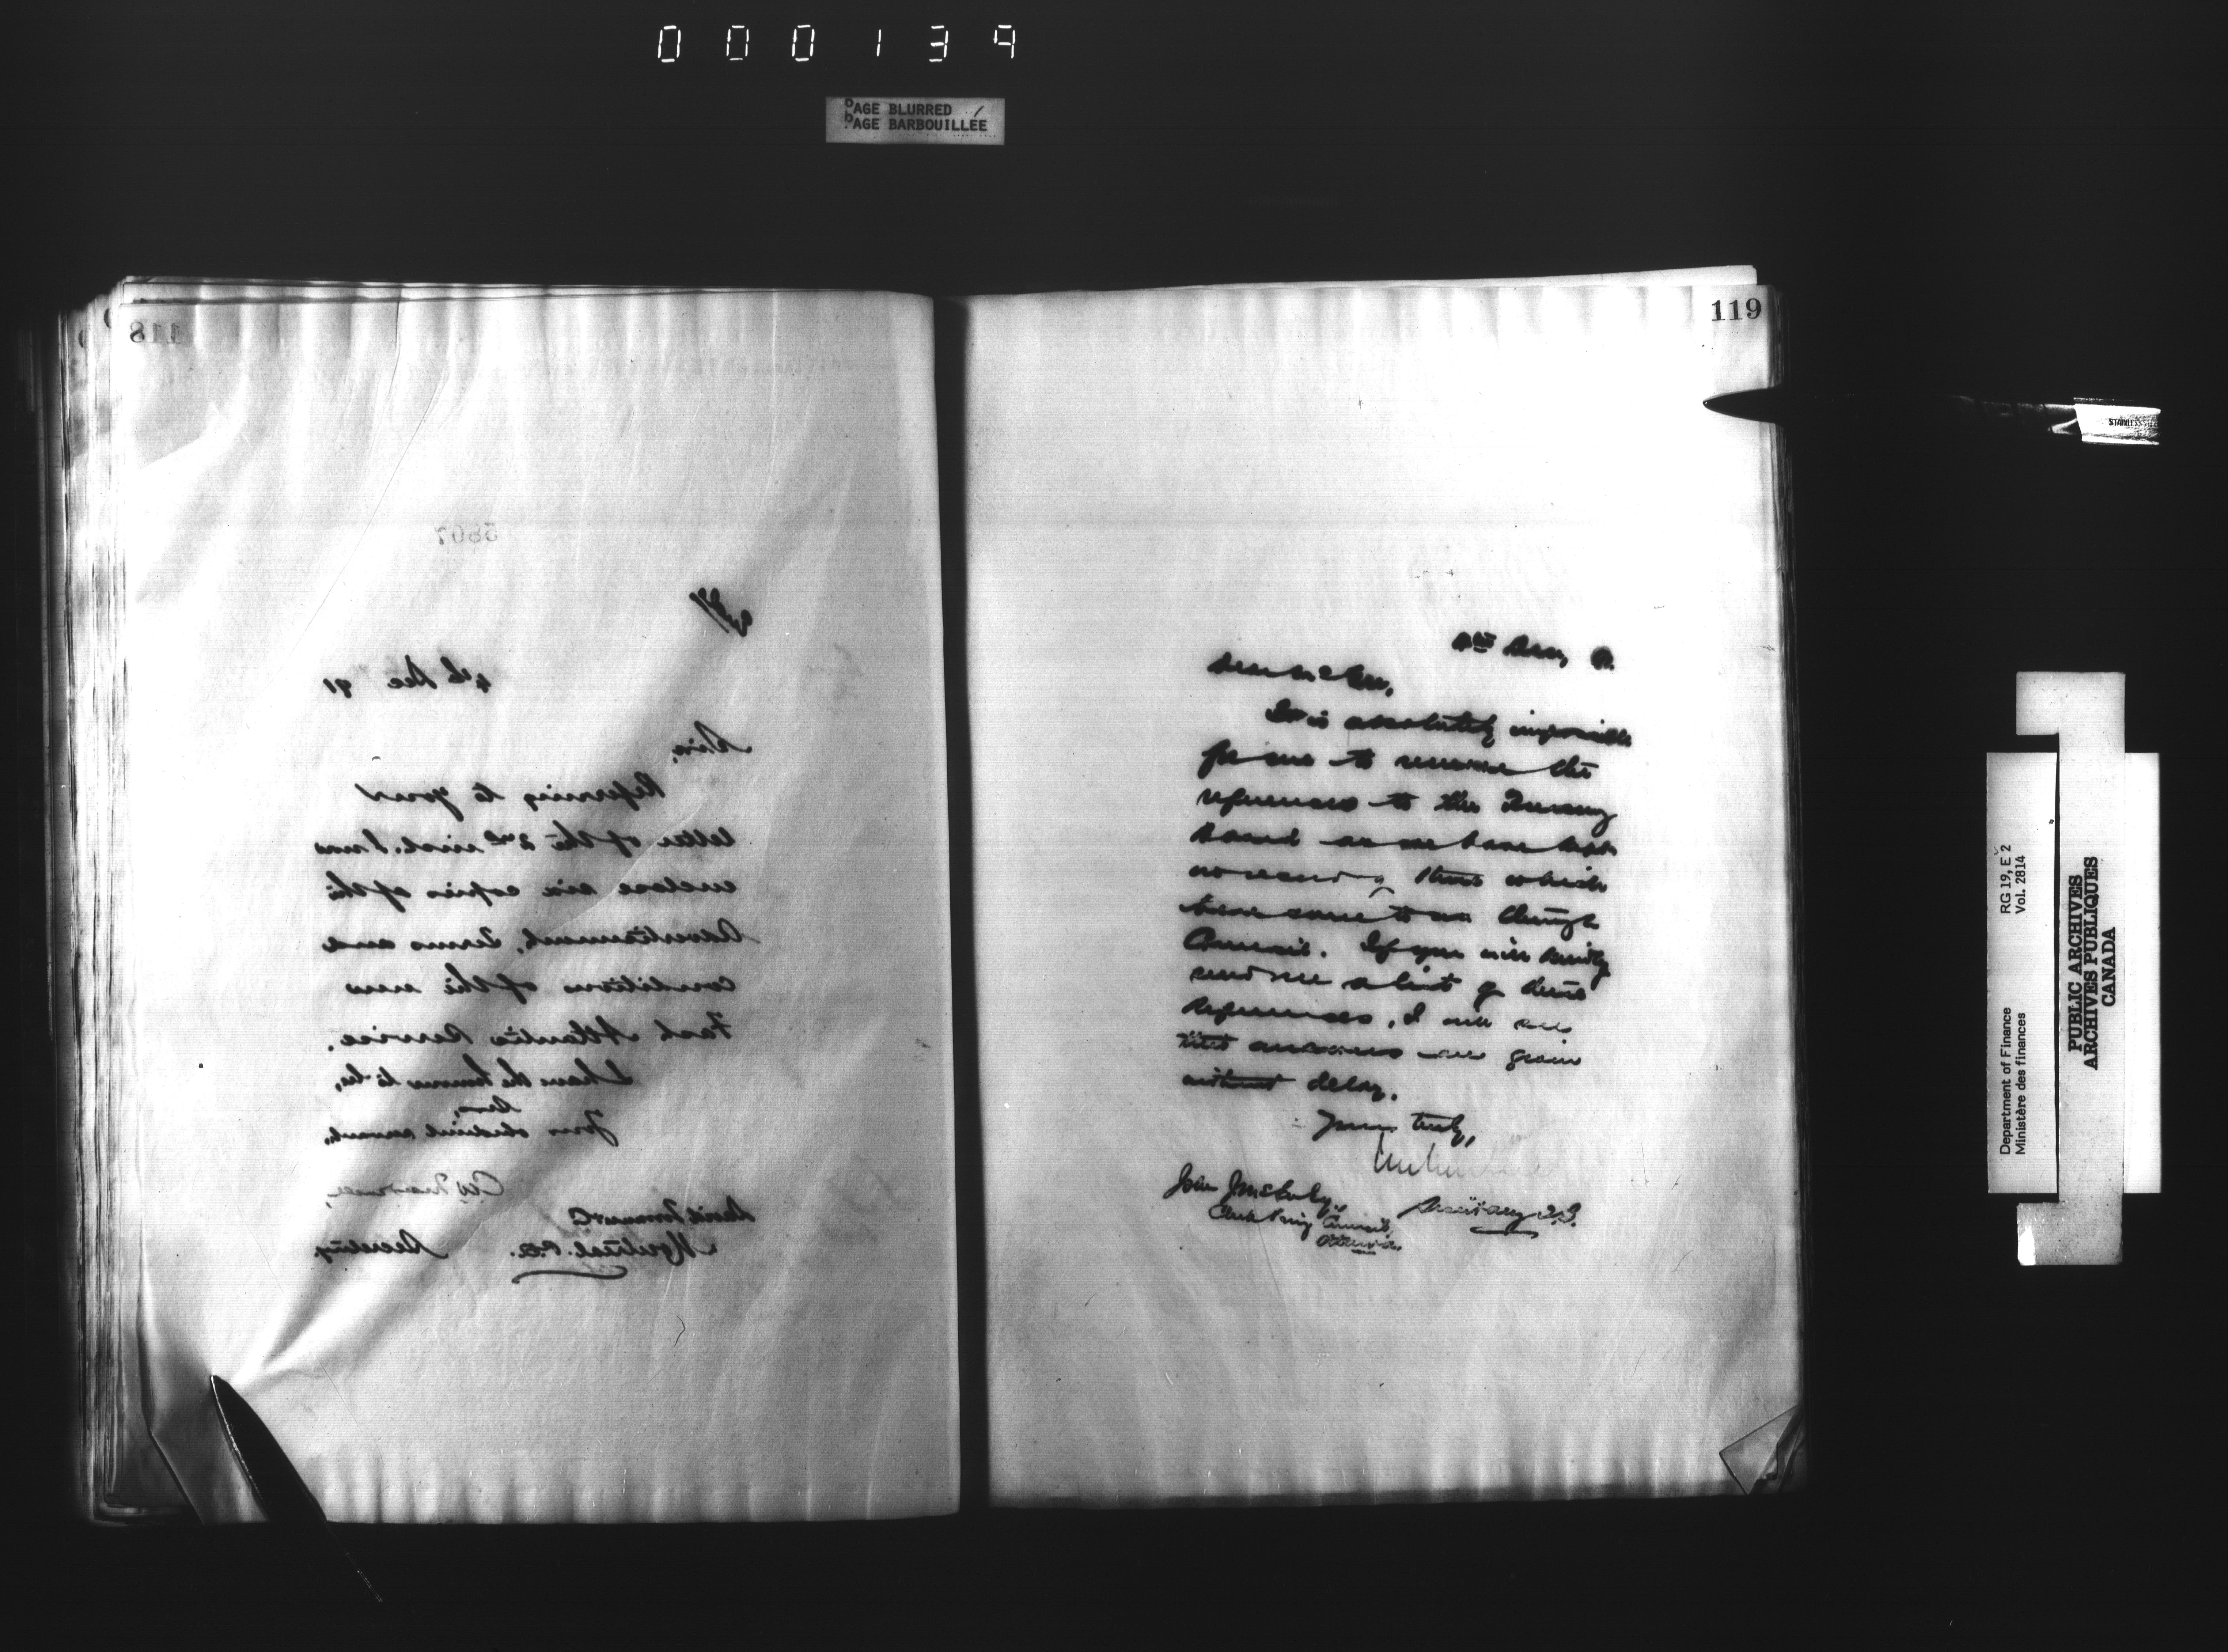 000139
PAGE BLURRED
PAGE BARBOUILLÉE
118
5867
4th Dec 91
Sir,
Referring to your
letter of the 2nd inst. I now
enclose six copies of the
Advertisement, Terms and
conditions of the new
Fast Atlantic Service.
I have the honour to be,
Sir,
Your obedient servant,
Secretary
Montreal. P.Q.
119
4th Decr, 91.
Dear Mr McGee,
It is absolutely impossible
for me to the
references to the Treasury
Board as we have kept
no record of those which
have come to us through
Council. If you will kindly
send me a list of these
References, I will see
that answers are given
without delay.
Yours truly,
Secretary T.B.
John J McGee Esq.
Clerk Privy Council,
Ottawa.
STAINLESS
Department of Finance RG 19, E 2
Ministère des finances Vol. 2814
PUBLIC ARCHIVES
ARCHIVES PUBLIQUES
CANADA